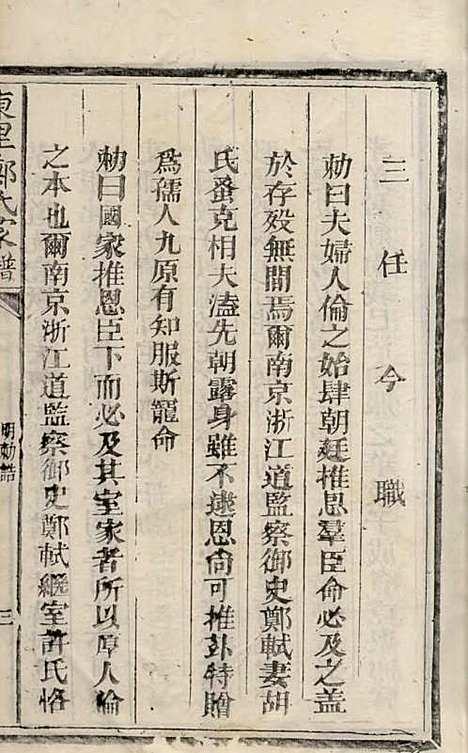 三任今職
勅曰夫婦人倫之始肆朝廷推恩羣臣命必及之盖
於存殁無間焉爾南京浙江道監察御史鄭軾妻胡
氏蚤克相夫溘先朝露身雖不逮恩尙可推玆特贈
爲孺人九原有知服斯寵命
勅曰國家推恩臣下而必及其室家者所以厚人倫
之本也爾南京浙江道監察御史鄭軾繼室許氏恪
東里鄭氏家譜
明勅誥
三